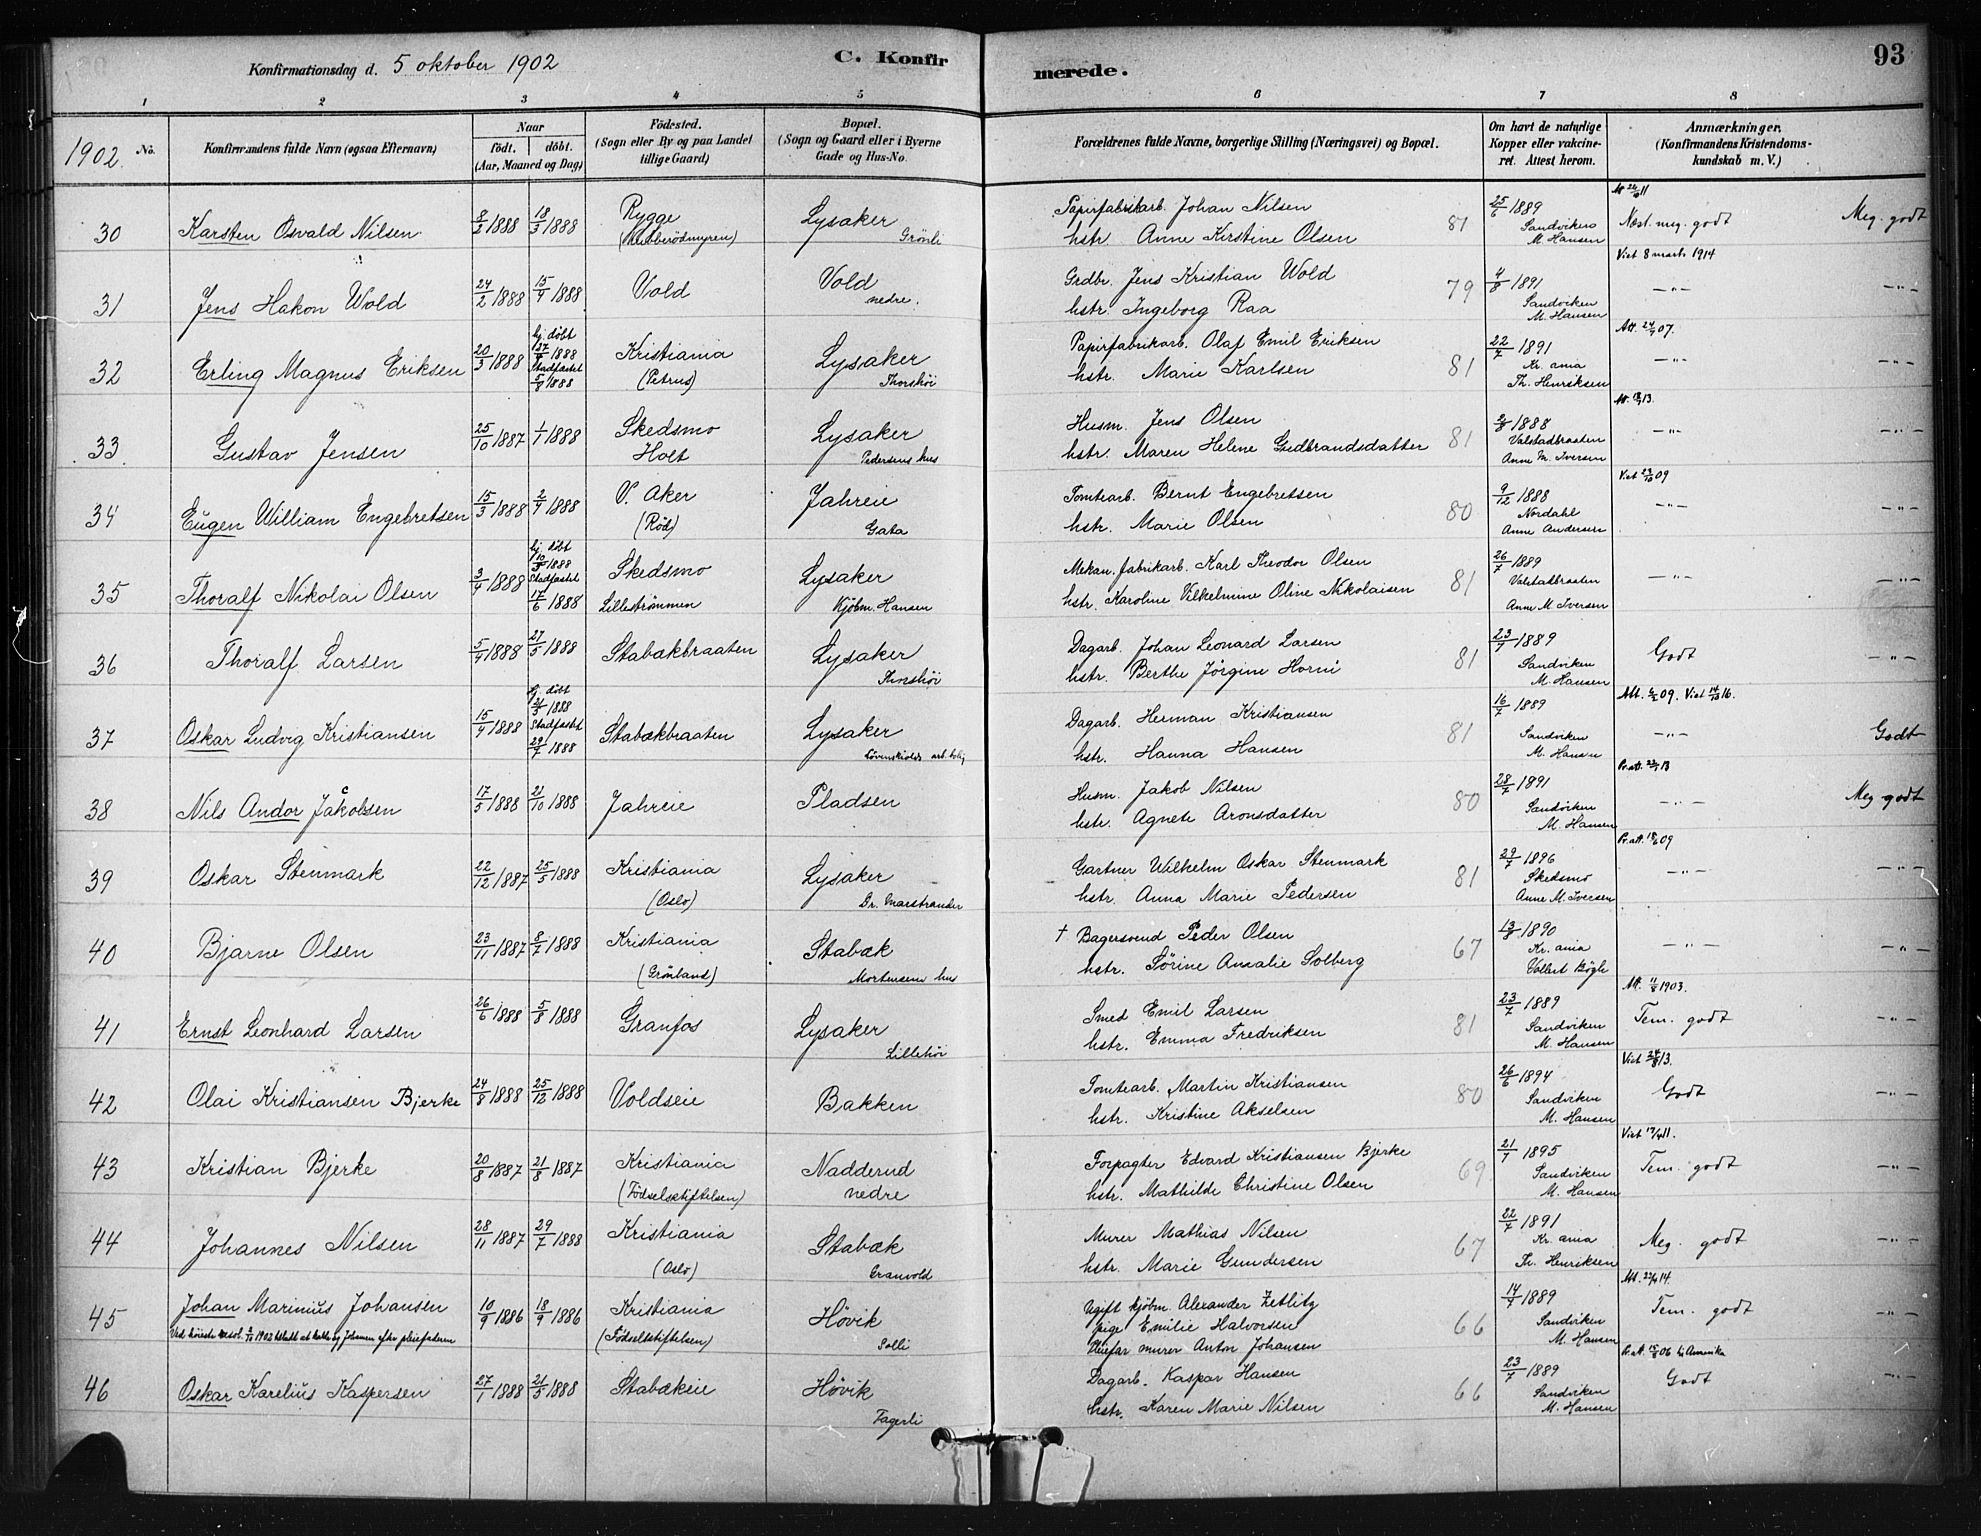 Konfirmationsdag d. 5 oktober 1902
C. Konfirmerede.
93
1 2 3 4 5 6 7 8
1902. No.
Konfirmandens fulde Navn (ogsaa Efternavn)
Naar
födt. döbt.
(Aar, Maaned og Dag)
Födested.
(Sogn eller By og paa Landet
tillige Gaard)
Bopæl.
(Sogn og Gaard eller i Byerne
Gade og Hus-No.
Forældrenes fulde Navne, borgerlige Stilling (Næringsvei) og Bopæl.
Om havt de naturlige
Kopper eller vakcine-
ret. Attest herom.
Anmærkninger.
(Konfirmandens Kristendoms-
kundskab m. V.)
30 Karsten Osvald Nilsen 8/2 1888 18/3 1888 Rygge Lysaker Grønli
Papirfabrikarb. Johan Nilsen
hstr. Anne Kirstine Olsen 81
25/6 1889 Sandviken M. Hansen
Næst. meg. godt Meg. godt
31 Jens Hakon Wold 24/2 1888 15/4 1888 Vold Vold nedre.
Grdbr. Jens Kristian Wold
hstr. Ingeborg Raa 79
4/8 1891 Sandviken M. Hansen
Viet 8 marts 1914
—"— —"—
32 Erling Magnus Eriksen 20/3 1888 hj. døbt 1888 Stadfæstet 5/8 1888 Kristiania (Petrus) Lysaker Thorshøi
Papirfabrikarb. Olaf Emil Eriksen
hstr. Marie Karlsen 81
22/7 1891 Kr. ania Th. Henriksen
—"— —"—
33 Gustav Jensen 25/10 1887 1/1 1888 Skedsmo Holt Lysaker Pedersens hus
Husm. Jens Olsen
hstr. Maren Helene Gudbrandsdatter 81
2/8 1888 Valstadbraaten Anne M. Iversen
—"— —"—
34 Eugen William Engebretsen 15/3 1888 2/4 1888 V. Aker (Röd) Jahreie Gata
Tomtearb. Bernt Engebretsen
hstr. Marie Olsen 80
9/12 1888 Nordahl Anne Andersen
—"— —"—
35 Thoralf Nikolai Olsen 3/4 1888 hj. døbt 1888 Stadfæstet 17/6 1888 Skedsmo Lillestrømmen Lysaker Kjöbm. Hansen
Mekan. fabrikarb. Karl Theodor Olsen
hstr. Karoline Vilhelmine Oline Nikolaisen 81
26/7 1889 Valstadbraaten Anne M Iversen
—"— —"—
36 Thoralf Larsen 5/4 1888 27/5 1888 Stabækbraaten Lysaker
Dagarb. Johan Leonard Larsen
hstr. Berthe Jörgine Horni 81
23/7 1889 Sandviken M. Hansen
Godt —"—
37 Oskar Ludvig Kristiansen 15/4 1888 hj. døbt 1888 Stadfæstet 29/7 1888 Stabækbraaten Lysaker Lövenskiolds arb. bolig
Dagarb. Herman Kristiansen
hstr. Hanna Hansen 81
16/7 1889 Sandviken M. Hansen
—"— Godt
38 Nils Andor Jakobsen 17/5 1888 21/10 1888 Jahreie Pladsen
Husm. Jakob Nilsen
hstr. Agnete Aronsdatter 80
28/7 1891 Sandviken M. Hansen
—"— Meg godt
39 Oskar Stenmark 22/12 1887 25/5 1888 Kristiania (Oslo) Lysaker Gr. Marstrander
Gartner Wilhelm Oskar Stenmark
hstr. Anna Marie Pedersen 81
29/7 1896 Skedsmo Anne M. Iversen
—"— —"—
40 Bjarne Olsen 23/11 1887 8/7 1888 Kristiania (Grönland) Stabæk Mortensens hus
† Bagersvend Peder Olsen
hstr. Sörine Amalie Solberg 67
13/8 1890 Kr. ania
—"— —"—
41 Ernst Leonhard Larsen 26/6 1888 5/8 1888 Granfos Lysaker Lillehøi
Smed Emil Larsen
hstr. Emma Fredriksen 81
23/7 1889 Sandviken M. Hansen
Tem. godt —"—
42 Olai Kristiansen Bjerke 24/8 1888 25/12 1888 Voldseie Bakken
Tomtearb. Martin Kristiansen
hstr. Kristine Akselsen 80
26/6 1894 Sandviken M. Hansen
Godt —"—
43 Kristian Bjerke 20/8 1887 21/8 1887 Kristiania (Fødselsstiftelsen) Nadderud nedre
Forpagter Edvard Kristiansen Bjerke
hstr. Mathilde Christine Olsen 69
21/7 1895 Sandviken M. Hansen
Tem. godt —"—
44 Johannes Nilsen 28/11 1887 29/7 1888 Kristiania (Oslo) Stabæk Granvold
Murer Mathias Nilsen
hstr. Marie Gundersen 67
22/7 1891 Kr. ania Th. Henriksen
Meg. godt —"—
45 Johan Marinius Johansen 10/9 1886 18/9 1886 Kristiania (Födselsstiftelsen) Høvik Solli
Ugift kjöbm. Alexander Zetlitz
pige Emilie Halvorsen 66
Pleiefar murer Anton Johansen
14/7 1889 Sandviken M. Hansen
Tem. godt —"—
46 Oskar Karelius Kaspersen 27/1 1888 21/5 1888 Stabækeie Høvik Fagerli
Dagarb. Kaspar Hansen
hstr. Karen Marie Nilsen 66
23/7 1889 Sandviken M. Hansen
Godt —"—